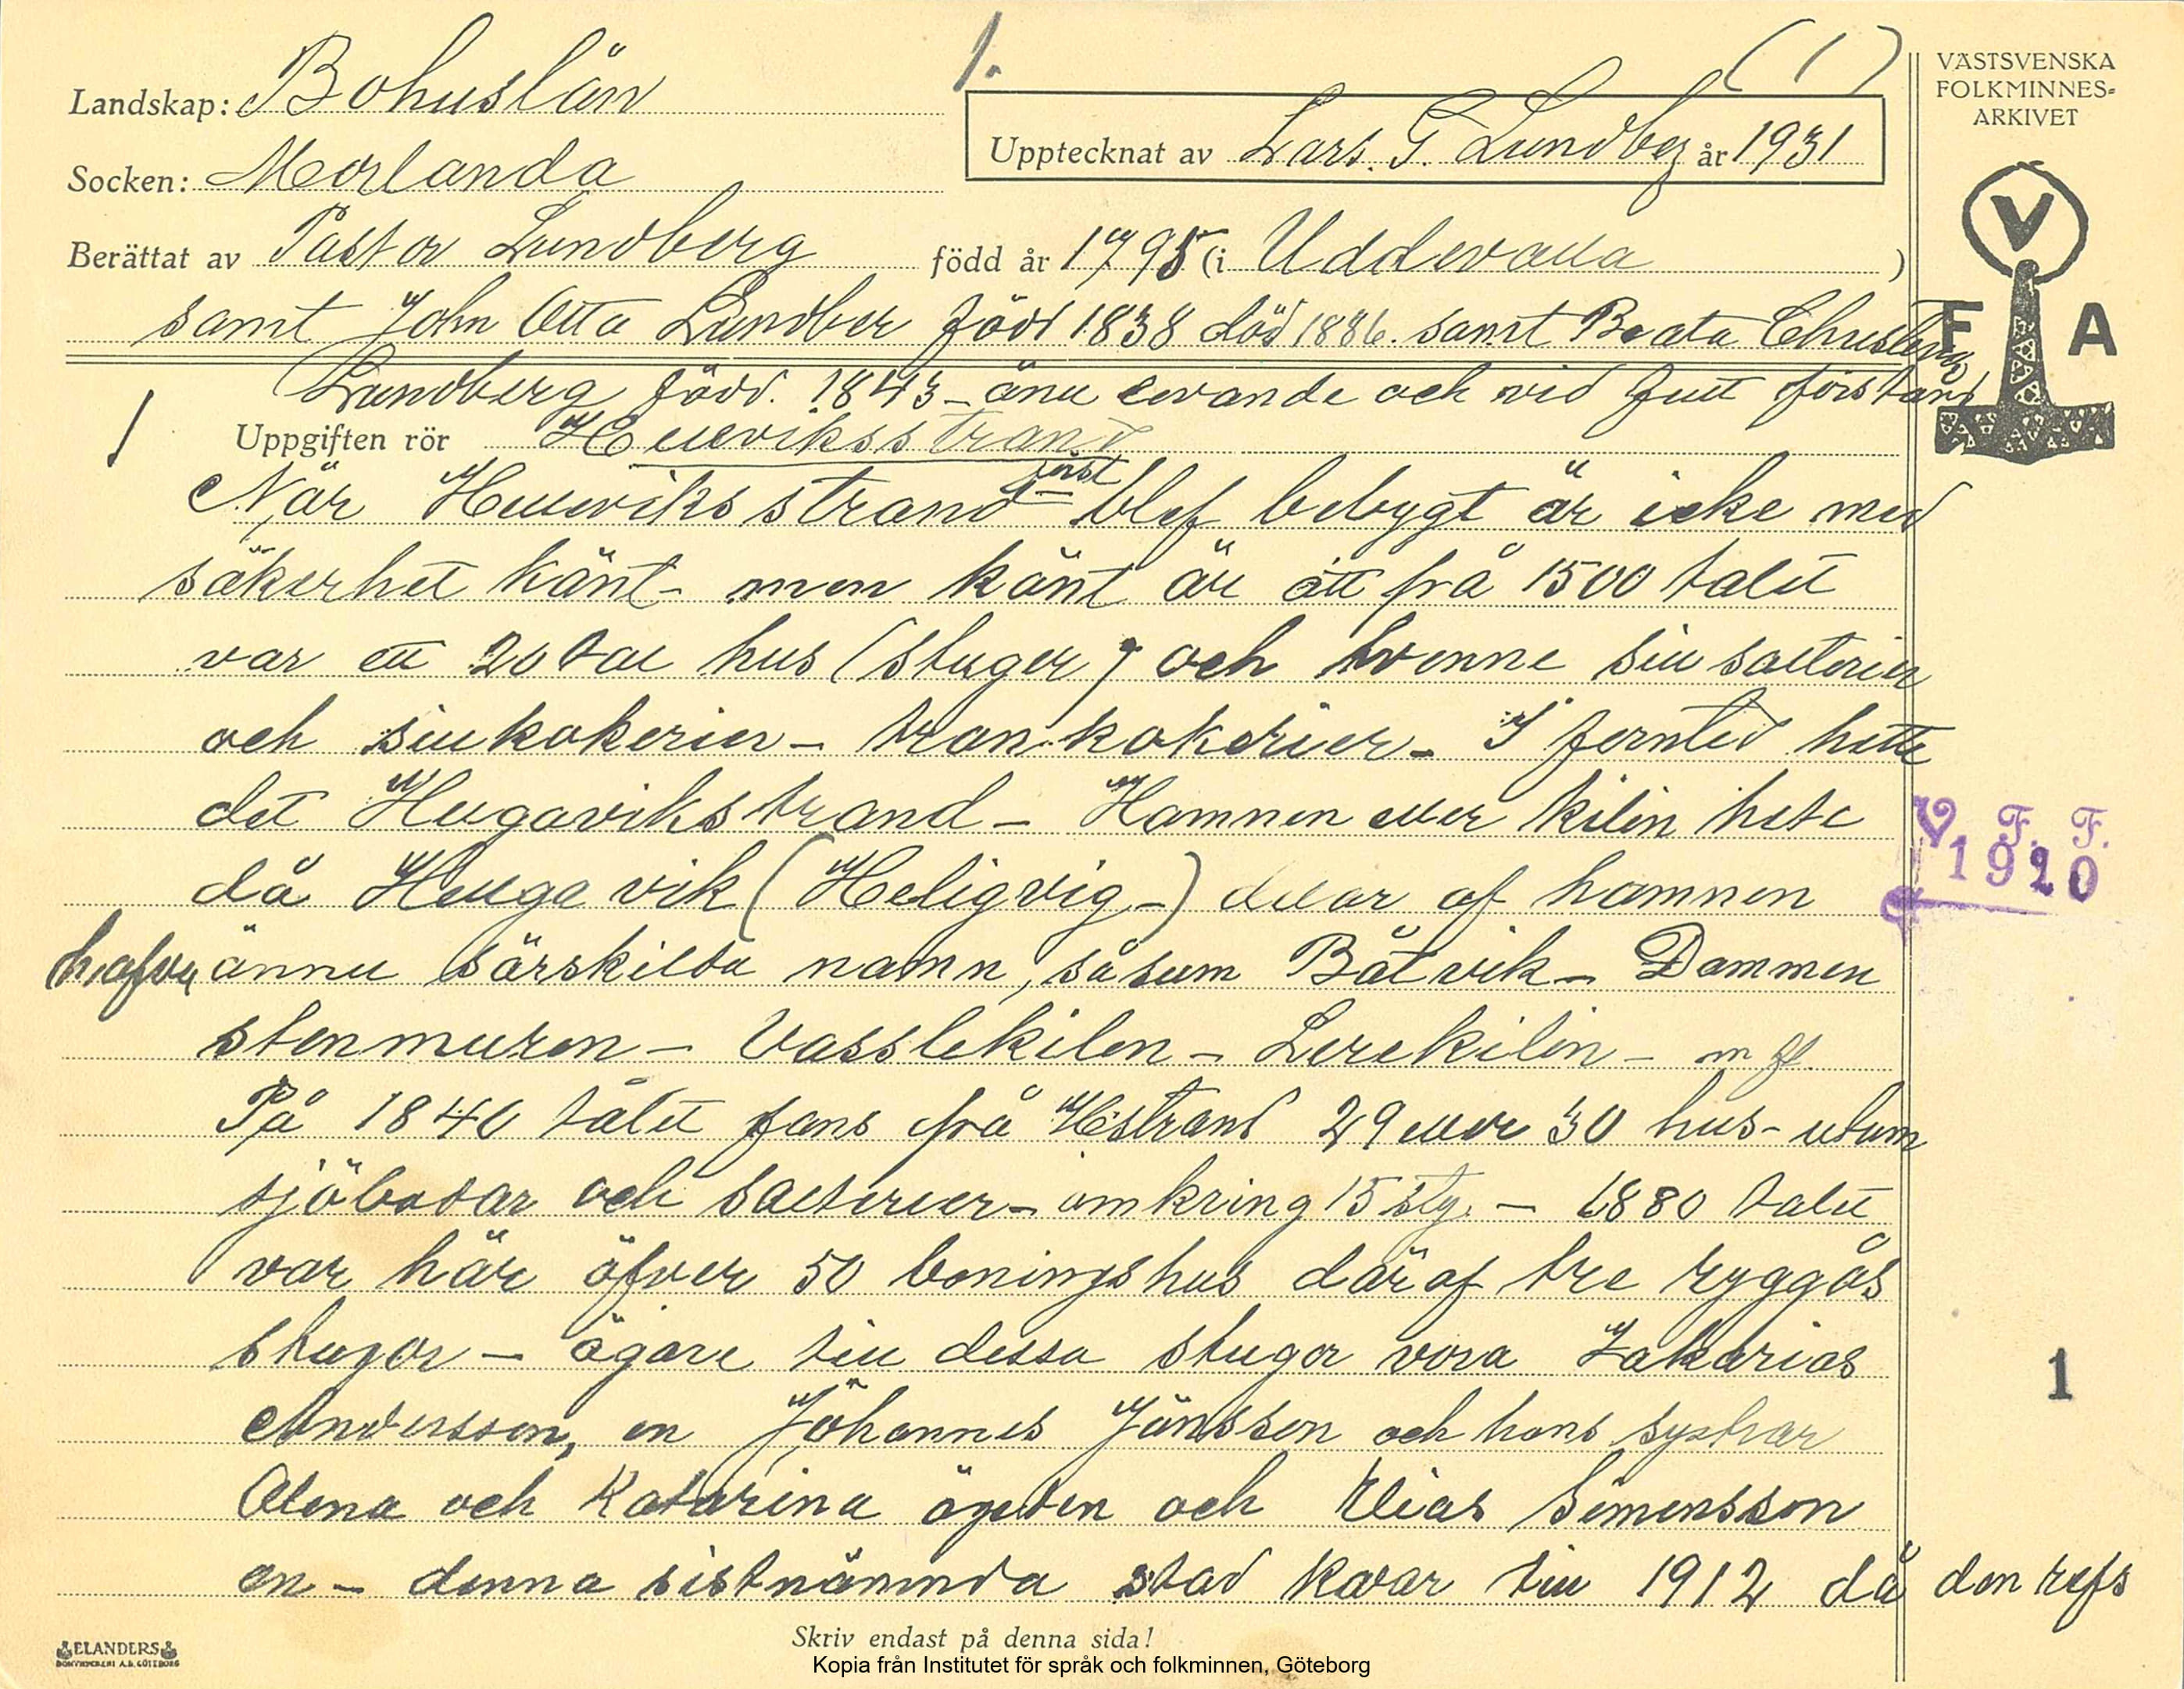 1.
(1)
Landskap: Bohuslän
Upptecknat av Lars. G. Lundberg år 1931
Socken: Morlanda
Berättat av Pastor Lundberg född år 1795 (i Uddevalla )
samt John Otto Lundber född 1838 död 1886. samt Beata Christina
Lundberg född. 1843 – änu levande och vid full förstånd
1
Uppgiften rör Hellviksstrand
När Hellviksstrand först blef bebygt är icke med
säkerhet känt – men känt är att frå 1500 talet
var ett 20 tal hus (stugor) och tvenne sillsalterier
och sillkokerier – trankokerier – I forntid hette
det Helgavikstrand – Hamnen eller kilen hete
då Helga vik (Heligvig –) delar af hamnen
hafva ännu särskilda namn, såsum Båtvik – Dammen
stenmuren – Vasslekilen – Lerekilen – m fl.
På 1840 talet fans frå H strand 29 eller 30 hus – utum
sjöbodar och salterier – omkring 15 stg. – 1880 talet
var här öfver 50 boningshus däraf tre ryggås
stugor – ägare till dessa stugor vora Zakarias
Andersson, en Johannes Jönsson och hans systrar
Olena och Katarina en och Elias Simensson
en – denna sistnämnda stod kvar till 1912 då den refs
VÄSTSVENSKA
FOLKMINNES-
ARKIVET
V
F A
V. F. F.
1920
1
Skriv endast på denna sida!
ELANDERS
BOKTRYCKERI A.B. GÖTEBORG
Kopia från Institutet för språk och folkminnen, Göteborg